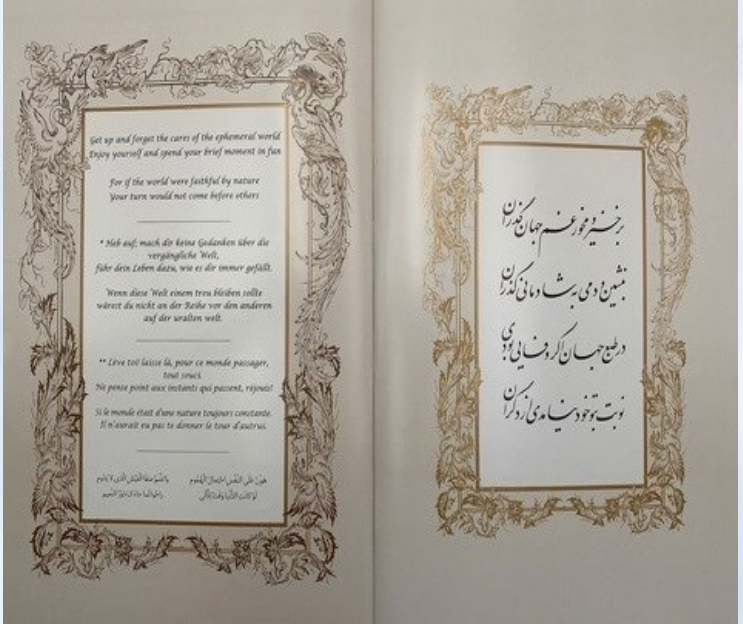 Get up and forget the cares of the ephemeral world
Enjoy yourself and spend your brief moment in fun
For if the world were faithful by nature
Your turn would not come before others
* Heb auf, mach dir keine Gedanken über die
vergängliche Welt,
führ dein Leben dazu, wie es dir immer gefällt.
Wenn diese Welt einem treu bleiben sollte
wärest du nicht an der Reihe vor den anderen
auf der uralten welt.
** Lève toi! laisse là, pour ce monde passager,
tout souci.
Ne pense point aux instants qui passent, réjouis!
Si le monde était d'une nature toujours constante.
Il n'aurait eu pas te donner le tour d'autrui.
هون على النفس احتمال الهموم واغنم صفا العيش الذي لا يدوم
لو كانت الدنيا وفت للألى راحوا لما جاءك دور النعيم
برخیز و مخور غم جهان گذران
بنشین و دمی به شادمانی گذران
در طبع جهان اگر وفایی بودی
نوبت بتو خود نیامدی از دگران